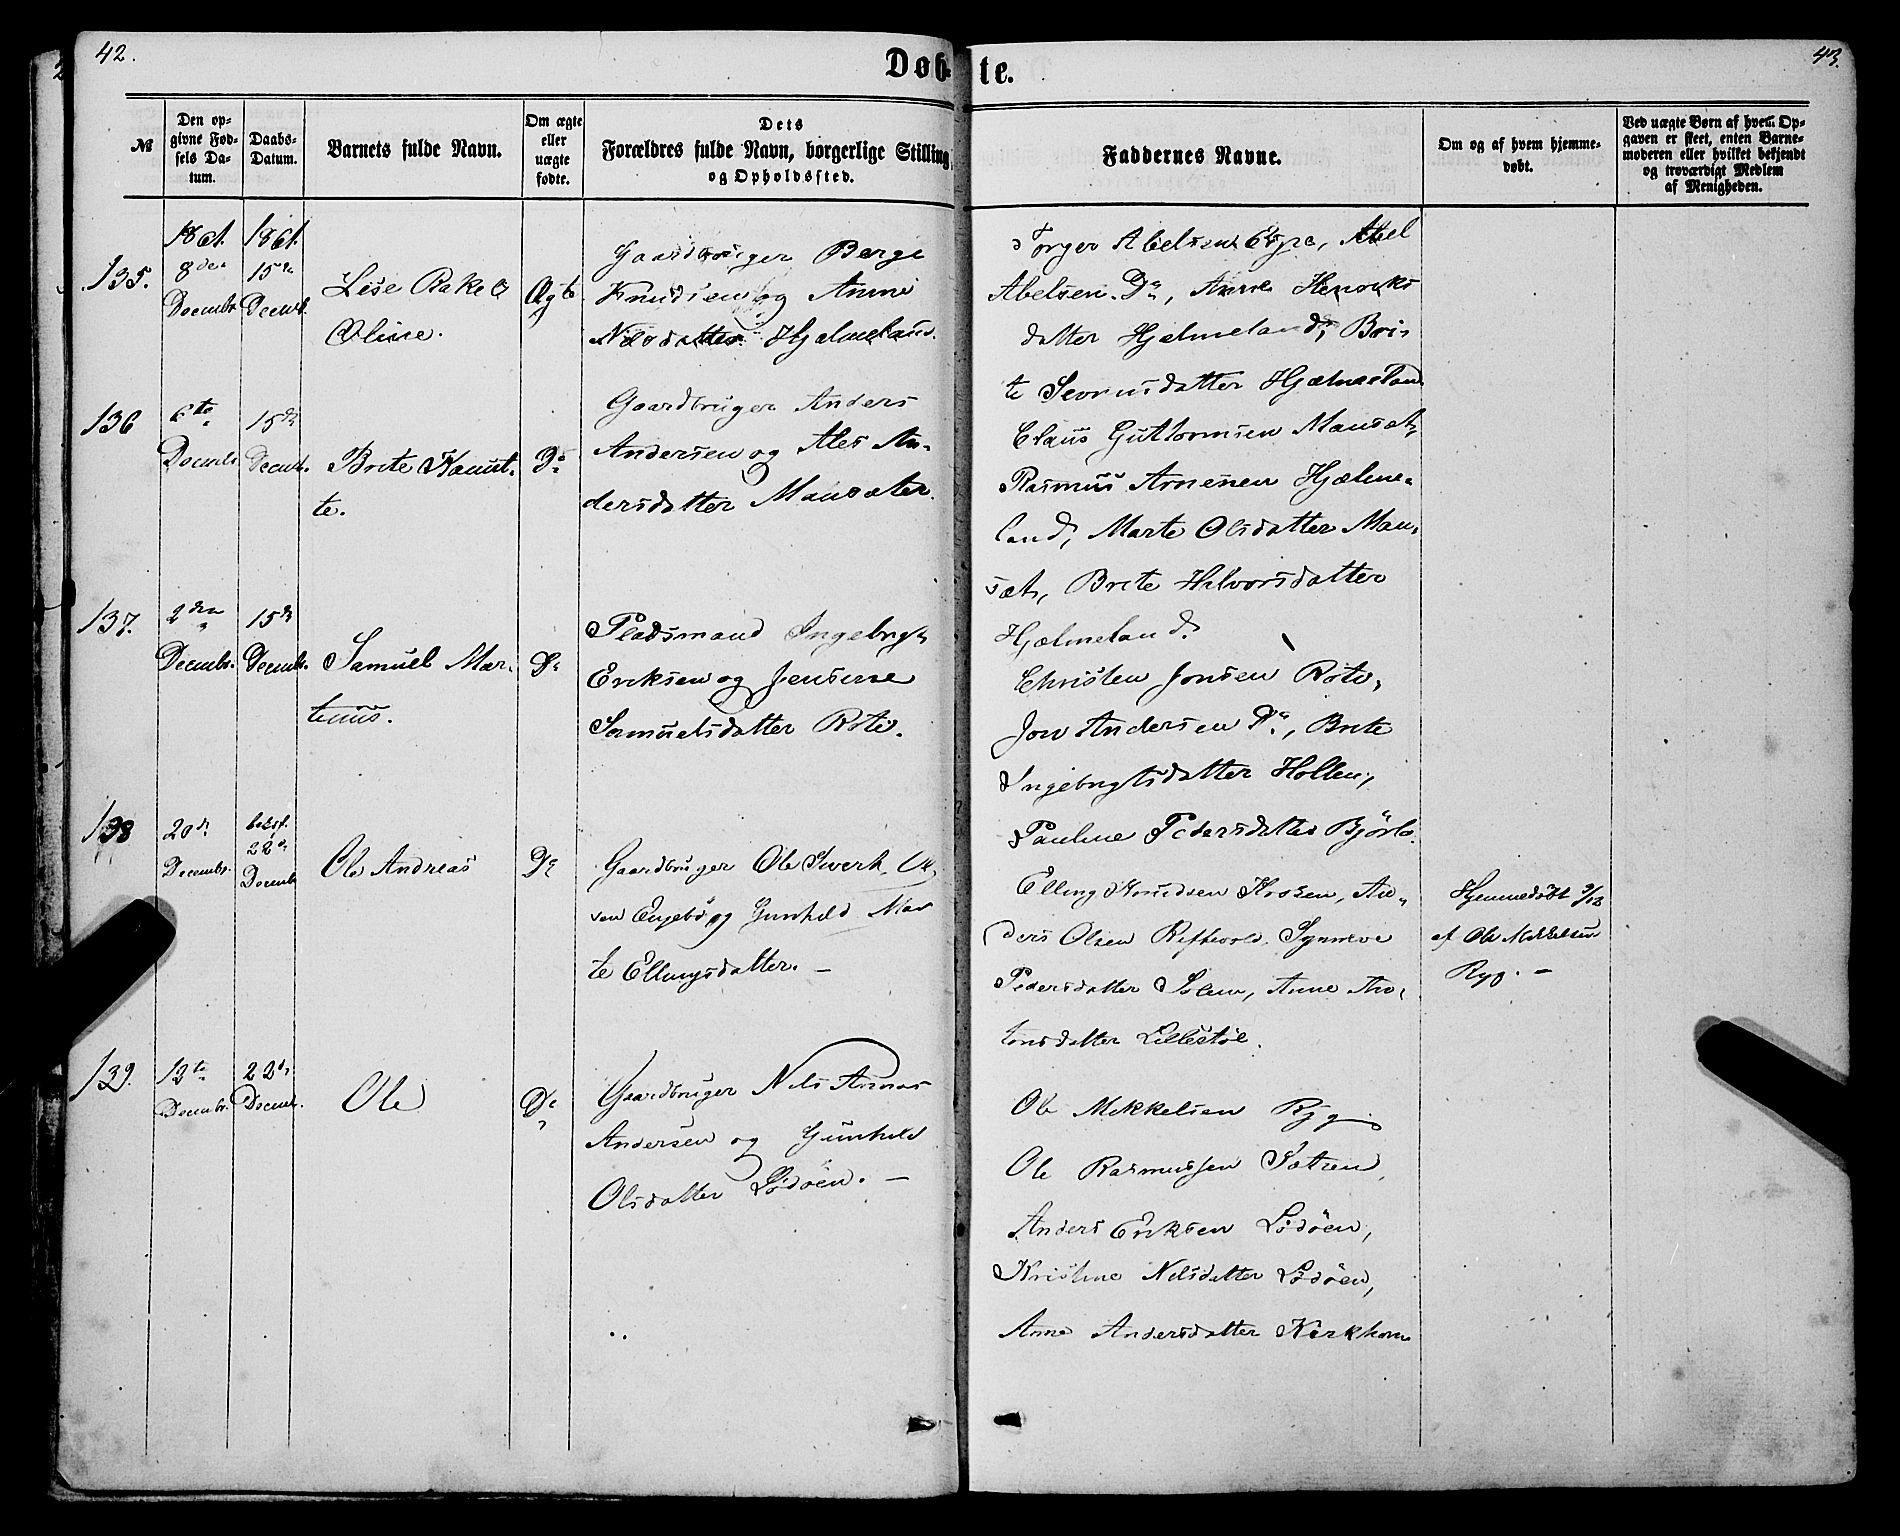 42.
Døb-
te.
43.
№
Den op-
givne Fød-
sels Da-
tum.
Daabs-
Datum.
Barnets fulde Navn.
Om ægte
eller
uægte
fødte.
Dets
Forældres fulde Navn, borgerlige Stilling
og Opholdssted.
Faddernes Navne.
Om og af hvem hjemme-
døbt.
Ved uægte Børn af hvem Op-
gaven er skeet, enten Barne-
moderen eller hvilket bekjendt
og troværdigt Medlem
af Menigheden.
135.
1861.
8de
Decembr.
1861.
15de
Decembr.
Lise Rakel
Oline.
Ægte
Gaardbruger Børge
Knudsen og Anne
Nilsdatter Hjælmeland.
Torger Abelsen Eyre, Abel
Abelsen Do, Anne Henriks
datter Hjelmeland, Bri-
te Sevrinsdatter Hjælmeland
136
6te
Decembr.
15de
Decembr.
Brite
te.
Do
Gaardbruger Anders
Andersen og Ales An-
dersdatter Mansæter.
Claus Guttormsen Mansæt,
Rasmus Arnesen Hjælme-
land, Marte Olsdatter Man-
sæt, Brite Halvorsdatter
Hjælmeland.
137.
2den
Decembr.
15de
Decembr.
Samuel Mar-
tinus.
Do
Pladsmand Ingebrigt
Eriksen og Jensine
Samuelsdatter Rote.
Christen Jonsen Rote,
Jon Andersen Do, Brite
Ingebrigtsdatter Hollen,
Pauline Pedersdatter Bjørlo.
138
20de
Decembr.
22de
Decembr.
Ole Andreas
Do
Gaardbruger Ole Siverk. Ol-
sen Engebø og Gunhild Mar
te Ellingsdatter. –
Elling Knudsen Krosen, An-
ders Olsen Refhvold. Synneve
Pedersdatter Solem, Anne An-
tonsdatter Lillestøl.
Hjemmedøbt
af Ole Mikkelsen
Ryg. –
139.
13te
Decembr.
22de
Decembr.
Ole
Do
Gaardbruger Nils Annas
Andersen og Gunhild
Olsdatter Lødøen. –
Ole Mikkelsen Ryg
Ole Rasmussen Sætren,
Anders Eriksen Lødøen,
Kristine Nilsdatter Lødøen,
Anne Andersdatter Kirkhorn